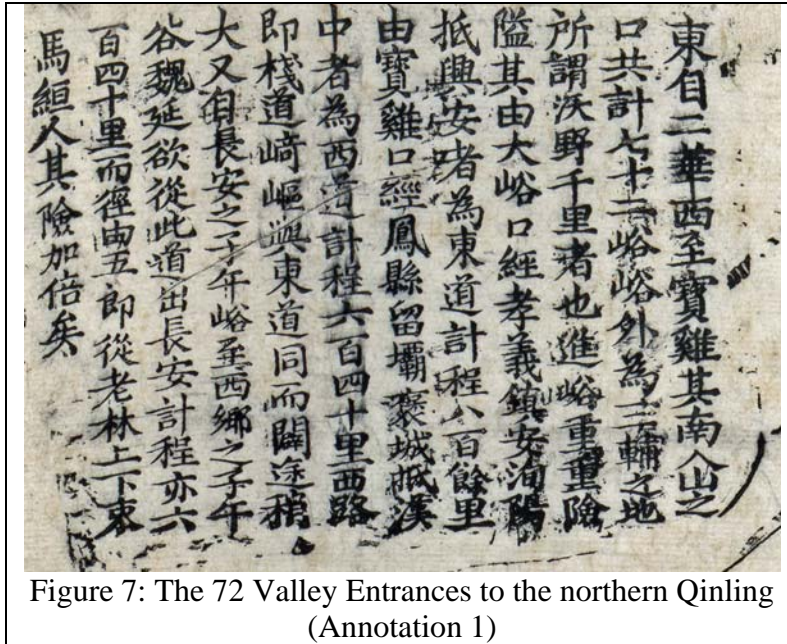 東自二華西至寶雞其南入山之
口共計七十二峪峪外為三輔之地
所謂沃野千里者也進峪重重險
隘其由大峪口經孝義鎮安洵陽
抵興安者為東道計程八百餘里
由寶雞口經鳳縣留壩褒城抵漢
中者為西道計程六百四十里西路
即棧道崎嶇與東道同而闢途稍
大又自長安之子午峪至西鄉之子午
谷魏延欲從此道出長安計程亦六
百四十里而徑由五即從老林上下束
馬縆人其險加倍矣
Figure 7: The 72 Valley Entrances to the northern Qinling
(Annotation 1)